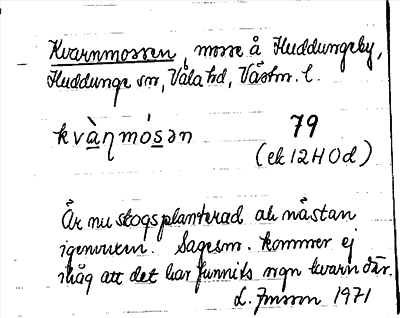 Kvarnmossen, mosse å Huddungeby,
Huddunge sn, Våla hd, Västm. l.
kvànmósən 79
(ek 12H 0d)
Är nu skogsplanterad och nästan
igenvuxen. Sagesm. kommer ej
ihåg att det har funnits ngn kvarn där.
L. Jonsson 1971